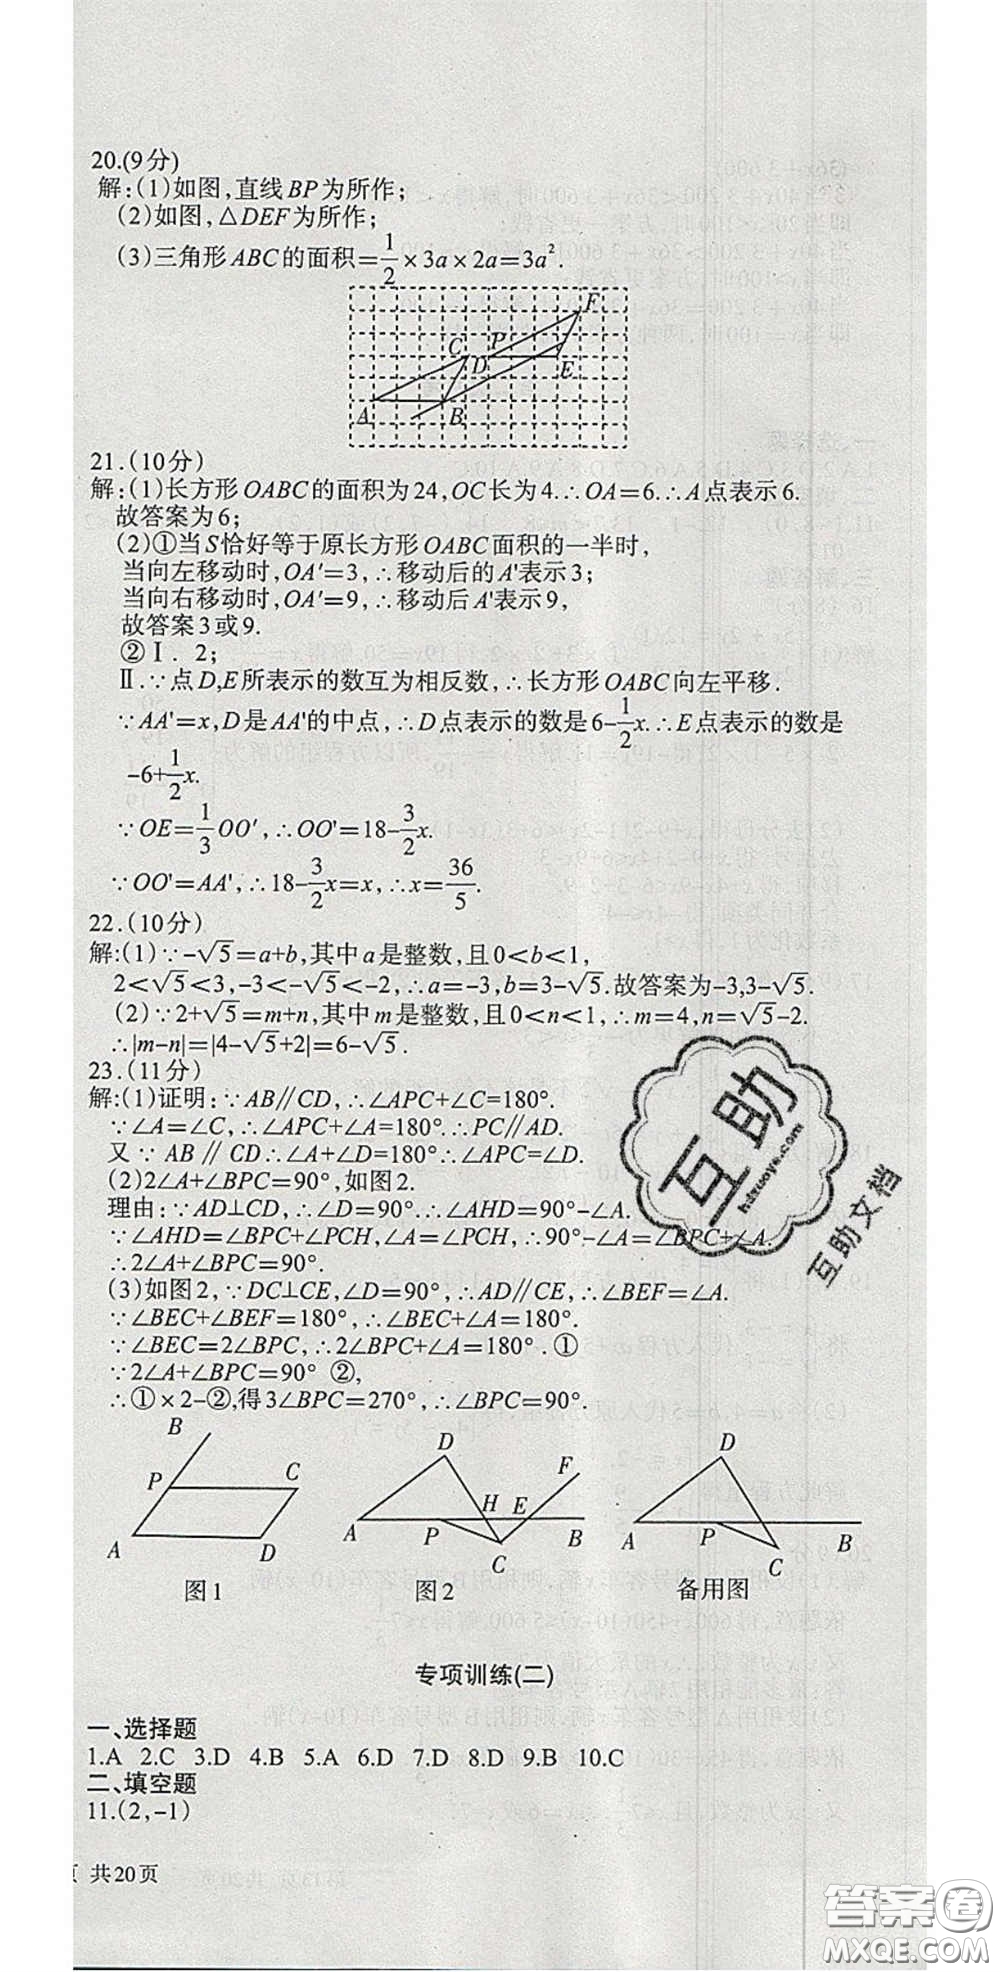 20.(9分)
解:(1)如图,直线BP为所作;
(2)如图,△DEF为所作;
(3)三角形ABC的面积=1/2×3a×2a=3a².
F
C
P
D
E
A
B
21.(10分)
解:(1)长方形OABC的面积为24,OC长为4.∴OA=6.∴A点表示6.
故答案为6;
(2)①当S恰好等于原长方形OABC面积的一半时,
当向左移动时,OA'=3,∴移动后的A'表示3;
当向右移动时,OA'=9,∴移动后A'表示9,
故答案3或9.
②Ⅰ. 2;
Ⅱ.∵点D,E所表示的数互为相反数,∴长方形OABC向左平移.
∵AA'=x,D是AA'的中点,∴D点表示的数是6-1/2x.∴E点表示的数是
-6+1/2x.
∵OE=1/3OO',∴OO'=18-3/2x.
∵OO'=AA',∴18-3/2x=x,∴x=36/5.
22.(10分)
解:(1)∵-√5=a+b,其中a是整数,且0<b<1,
2<√5<3,-3<-√5<-2,∴a=-3,b=3-√5.故答案为-3,3-√5.
(2)∵2+√5=m+n,其中m是整数,且0<n<1,∴m=4,n=√5-2.
∴|m-n|=|4-√5+2|=6-√5.
23.(11分)
解:(1)证明:∵AB∥CD,∴∠APC+∠C=180°.
∵∠A=∠C,∴∠APC+∠A=180°.∴PC∥AD.
又∵AB∥CD∴∠A+∠D=180°∴∠APC=∠D.
(2)2∠A+∠BPC=90°,如图2.
理由:∵AD⊥CD,∴∠D=90°.∴∠AHD=90°-∠A.
∵∠AHD=∠BPC+∠PCH,∠A=∠PCH,∴90°-∠A=∠BPC+∠A.
∴2∠A+∠BPC=90°.
(3)如图2,∵DC⊥CE,∠D=90°,∴AD∥CE,∴∠BEF=∠A.
∵∠BEC+∠BEF=180°,∴∠BEC+∠A=180°.
∵∠BEC=2∠BPC,∴2∠BPC+∠A=180°.①
∵2∠A+∠BPC=90° ②,
∴①×2-②,得3∠BPC=270°,∴∠BPC=90°.
B
P
C
A
D
图1
D
F
H
E
A
P
B
C
图2
D
A
P
B
C
备用图
专项训练(二)
一、选择题
1.A 2.C 3.D 4.B 5.A 6.D 7.D 8.D 9.B 10.C
二、填空题
11.(2,-1)
页 共20页
互助
hdzuoye.com
互助文档
答案圈
MXQE.COM